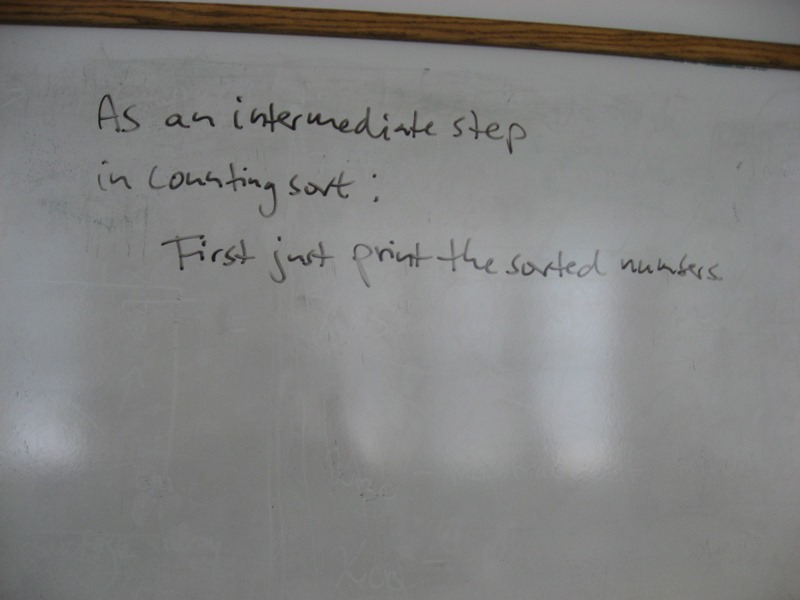 As an intermediate step
in counting sort :
First just print the sorted numbers